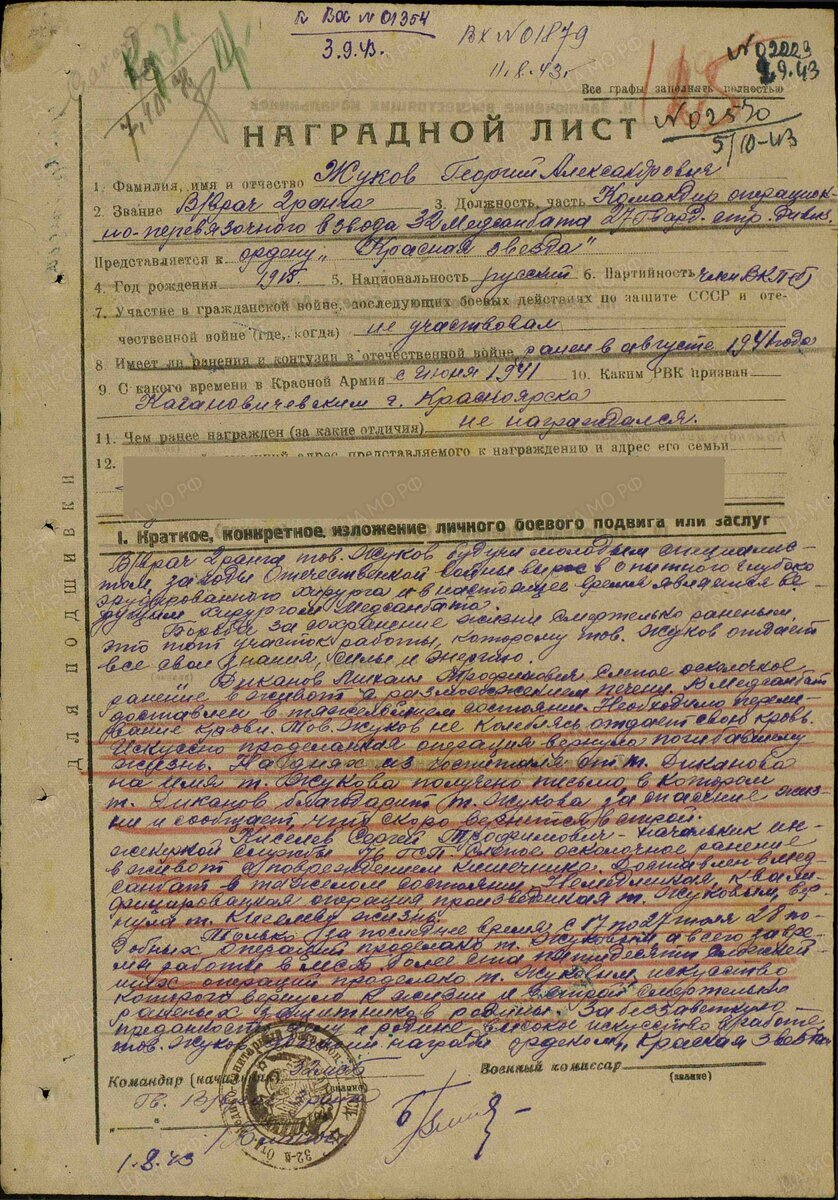 Вх №01354
3.9.43.
Вх №01879
11.8.43г
№02029
9.43
Все графы заполнять полностью
№02550
5/10-43
НАГРАДНОЙ ЛИСТ
1. Фамилия, имя и отчество Жуков Георгий Александрович
2. Звание В/врач 2 ранга 3. Должность, часть Командир операцион-
но-перевязочного взвода 32 Медсанбата 27 Гвард. стр. дивиз.
Представляется к ордену „Красная звезда"
4. Год рождения 1915. 5. Национальность русский 6. Партийность член ВКП(б)
7. Участие в гражданской войне, последующих боевых действиях по защите СССР и оте-
чественной войне (где, когда) не участвовал
8. Имеет ли ранения и контузии в отечественной войне ранен в августе 1941 года
9. С какого времени в Красной Армии с июня 1941 10. Каким РВК призван
Кагановичевским г. Красноярска
11. Чем ранее награжден (за какие отличия) не награждался.
12. адрес представляемого к награждению и адрес его семьи
I. Краткое, конкретное изложение личного боевого подвига или заслуг
В/врач 2 ранга тов. Жуков будучи молодым специалис-
том, за годы Отечественной войны вырос в опытного глубоко
эрудированного хирурга и в настоящее время является ве-
дущим хирургом Медсанбата.
Борьба за сохранение жизни смертельно раненым,
это тот участок работы, которому тов. Жуков отдает
все свои знания, силы и энергию.
Диканов Михаил Трофимович слепое осколочное
ранение в живот с размозжением печени. В Медсанбат
доставлен в тяжелейшем состоянии. Необходимо перели-
вание крови. Тов. Жуков не колеблясь отдает свою кровь.
Искуссно проделанная операция вернула погибавшему
жизнь. На днях из госпиталя от т. Диканова
на имя т. Жукова получено письмо в котором
т. Диканов благодарит т. Жукова за спасение жиз-
ни и сообщает что скоро вернется в строй.
Киселев Сергей Трофимович - начальник ин-
женерной службы ГСП. Слепое осколочное ранение
в живот с повреждением кишечника. Доставлен в мед-
санбат в тяжелом состоянии. Немедленная, квали-
фицированная операция произведенная т. Жуковым, вер-
нула т. Киселеву жизнь.
Только за последнее время с 17 по 27 июля 28 по-
добных операций проделано т. Жуковым, а всего за вре-
мя работы в более ста пятидесяти сложней-
ших операций проделано т. Жуковым, искусство
которого вернуло к жизни и в строй смертельно
раненых защитников родины. За беззаветную
преданность и родине высокое искусство в работе
тов. Жуков награды орденом „Красная звезда"
Командир (начальник)
(звание)
Военный комиссар
(звание)
1.8.43
ДЛЯ ПОДШИВКИ
ЦАМО РФ